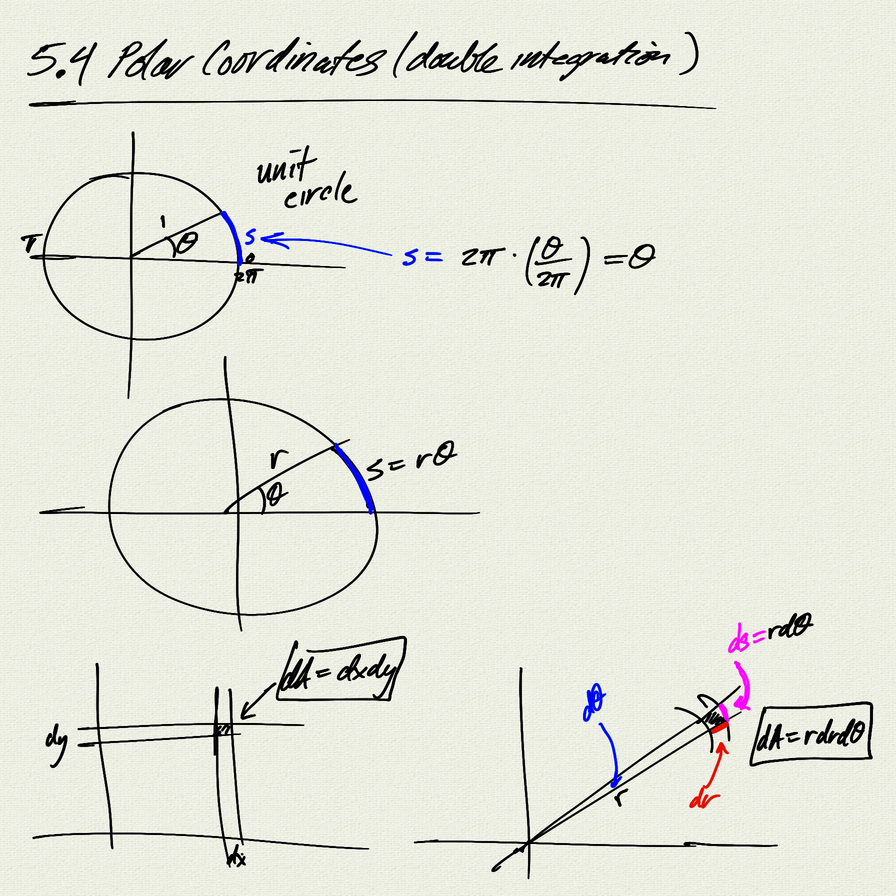 5.4 Polar Coordinates (double integration)
unit
circle
1
θ
π
s
0
2π
s = 2π · (θ/2π) = θ
r
θ
s = rθ
dA = dxdy
dy
dx
ds = rdθ
dθ
dA = rdrdθ
r
dr